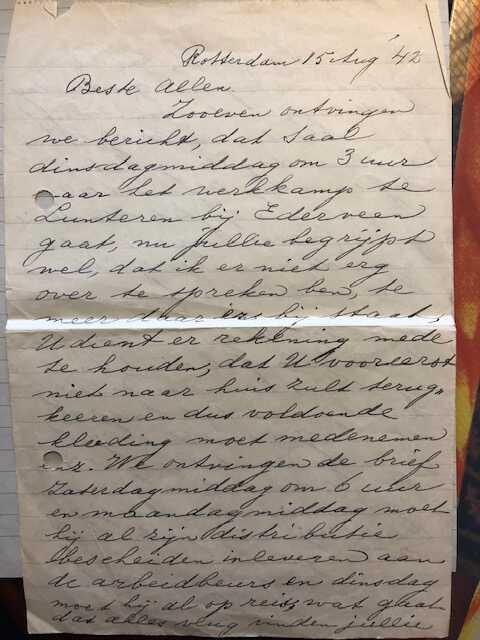 Rotterdam 15 Aug '42
Beste Allen
Zooeven ontvingen
we bericht, dat Saal
dinsdagmiddag om 3 uur
naar het werkkamp te
Lunteren bij Ederveen
gaat, nu jullie begrijpt
wel, dat ik er niet erg
over te spreken ben, te
meer daar er bij staat,
U dient er rekening mede
te houden, dat U vooreerst
niet naar huis zult terug"
keeren en dus voldoende
kleeding moet medenemen
enz. We ontvingen de brief
Zaterdagmiddag om 6 uur
en maandagmiddag moet
hij al zijn distributie
bescheiden inleveren aan
de arbeidbeurs en dinsdag
moet hij al op reis, wat gaat
dat alles vlug vinden jullie